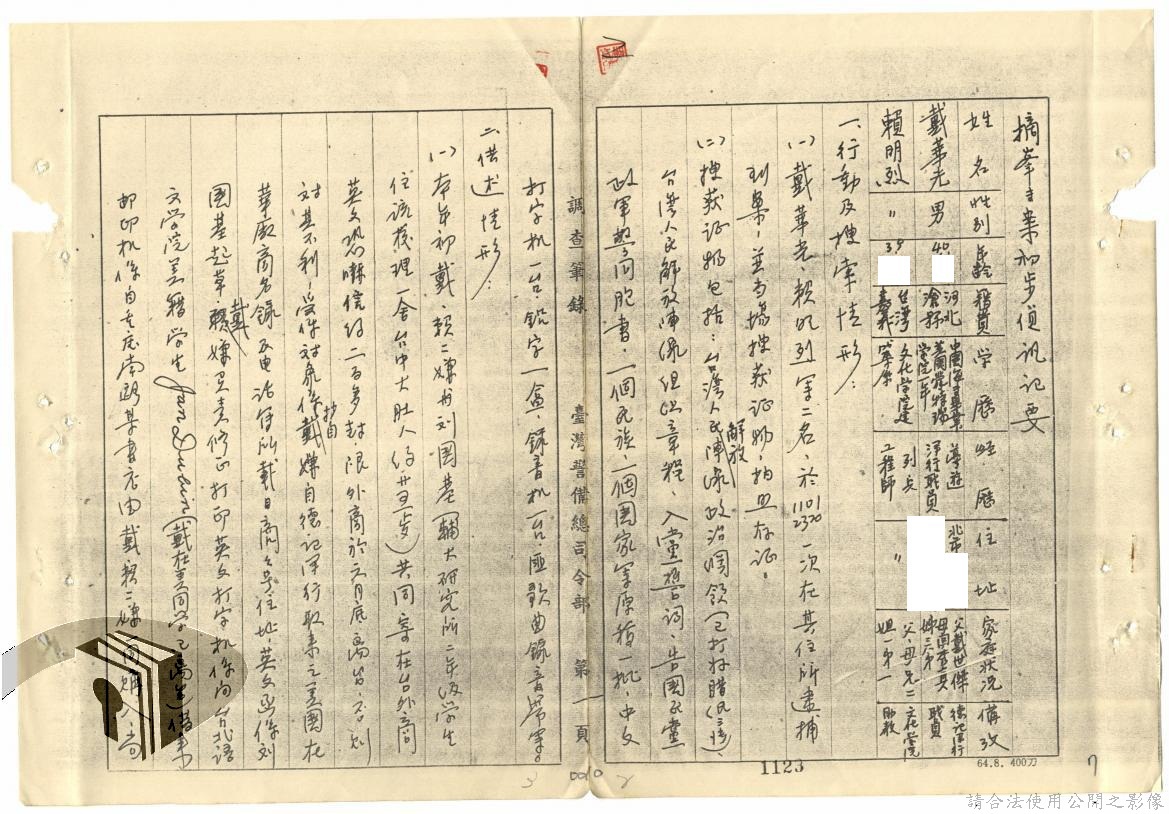 摘奉主案初步偵訊記要
姓名 性別 年齡 籍貫 学歷 經歷 住址 家庭狀況 備攷
戴華光 男 40. 河北滄縣 洋行職員 北市 父戴世傑 德記洋行職員
賴明烈 〃 35 台灣嘉義 文化学院 工程師 〃 父母兄二姐一弟一 文化学院助教
一、行動及搜索情形：
(一)戴華光、賴明烈等二名、於1101 2320一次在其住所逮捕
到案，並当場搜获証物，拍照存证。
(二)搜获证物包括：台湾人民解放陣線政治綱領(已打好腊紙三張)、
台湾人民解放陣線组織章程、入黨誓词、告國民黨
政軍幹部同胞書、一個民族、一個國家等原稿一批，中文
打字机一台、鉛字一盒、録音机一台、匪歌曲録音帶等
二、供述情形：
(一)本年初戴、賴二嫌与刘國基(輔大研究所二年级学生
住該校理一舍台中大肚人约廿五歲)共同寄在台外商
英文恐嚇信约二百多封限外商於六月底离台，否则
対其不利，受件対象係戴嫌抄自德記洋行取来之美國在
華廠商名錄及电话簿所載日商公号住址，英文函係刘
國基起草，戴嫌負責修正打印，英文打字机係向台北語
文学院美籍学生(戴在美同学已离台)借来
部印机係自重庆南路某書店由戴、賴二嫌
調查筆錄 臺灣警備總司令部 第一頁
1123
64.8. 400刀
7
2
0010
3
請合法使用公開之影像